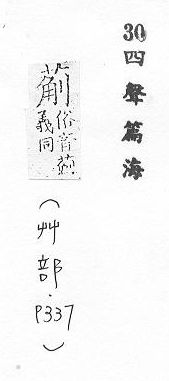 30四聲篇海
俗音
義同
(艸部·P337)